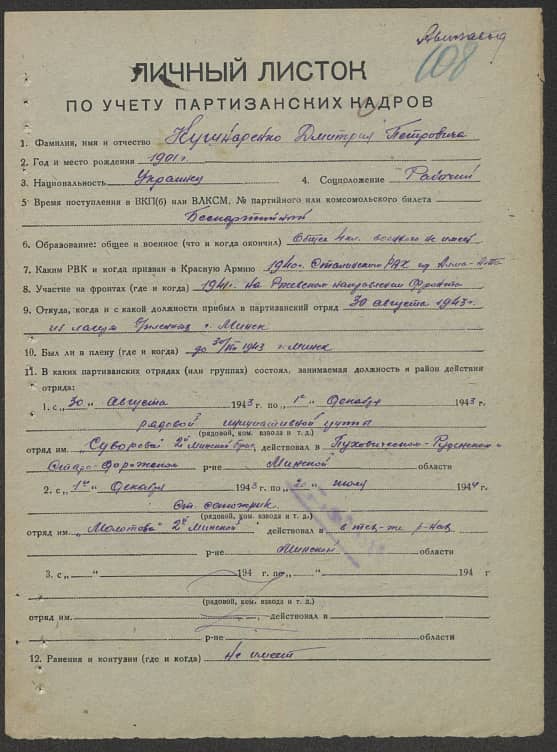 108
ЛИЧНЫЙ ЛИСТОК
ПО УЧЕТУ ПАРТИЗАНСКИХ КАДРОВ
1. Фамилия, имя и отчество Кушнаренко Дмитрий Петрович
2. Год и место рождения 1901 г.
3. Национальность Украинец 4. Соцположение Рабочий
5. Время поступления в ВКП(б) или ВЛКСМ, № партийного или комсомольского билета
Беспартийный
6. Образование: общее и военное (что и когда окончил) Общее 4 кл. военного не имеет
7. Каким РВК и когда призван в Красную Армию 1940 г. Сталинского РВК гор Алма-Ата
8. Участие на фронтах (где и когда) 1941 г. на Ржевском направлении фронта
9. Откуда, когда и с какой должности прибыл в партизанский отряд 30 августа 1943 г.
из лагеря г. Минск
10. Был ли в плену (где и когда) до 30/VIII 1943 г. Минск
11. В каких партизанских отрядах (или группах) состоял, занимаемая должность и район действия
отряда:
1. с „30“ Августа 1943 г. по „1го“ Декабря 1943 г.
рядовой инициативной
(рядовой, ком. взвода и т. д.)
отряд им. „Суворова“ 2й Минской бриг., действовал в Пуховичском-Руденском
Старо-Дорожском р-не Минской области
2. с „1го“ Декабря 1943 г. по „20“ июля 1944 г.
Ст. сапожник
(рядовой, ком. взвода и т. д.)
отряд им. „Молотова“ 2й Минской действовал в тех-же р-нах
р-не Минской области
3. с „ “ 194 г. по „ “ 194 г
(рядовой, ком. взвода и т. д.)
отряд им. , действовал в
р-не области
12. Ранения и контузии (где и когда) Не имеет